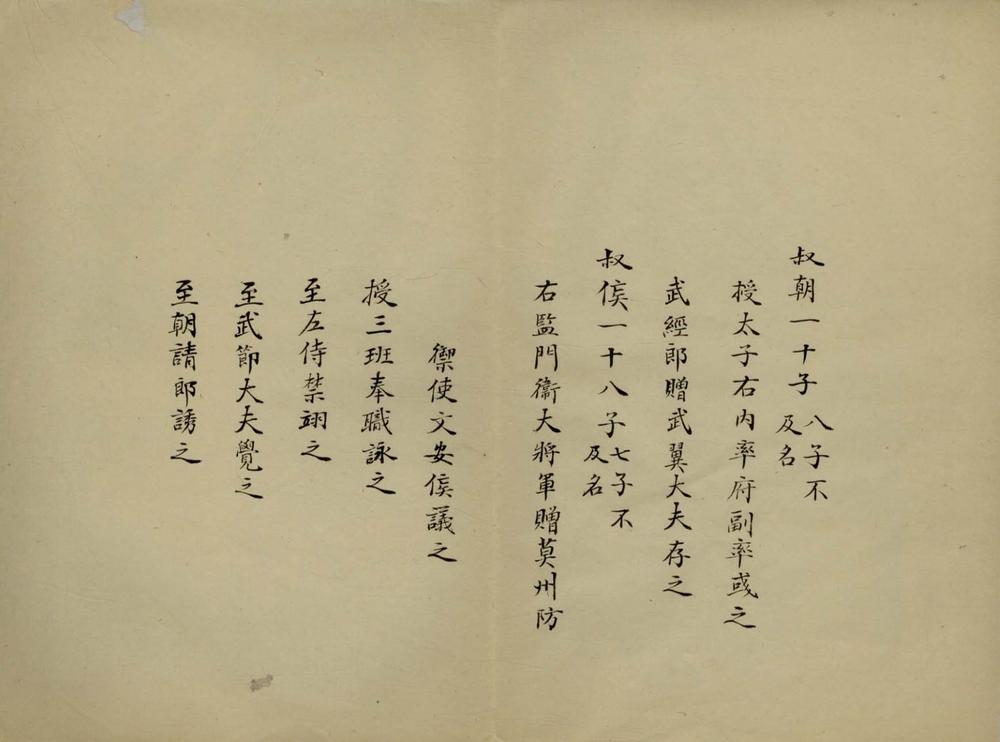 叔朝一十子八子不及名
授太子右內率府副率或之
武經郎贈武翼大夫存之
叔侯一十八子七子不及名
右監門衞大將軍贈莫州防
禦使文安侯議之
授三班奉職詠之
至左侍禁翊之
至武節大夫覺之
至朝請郎誘之